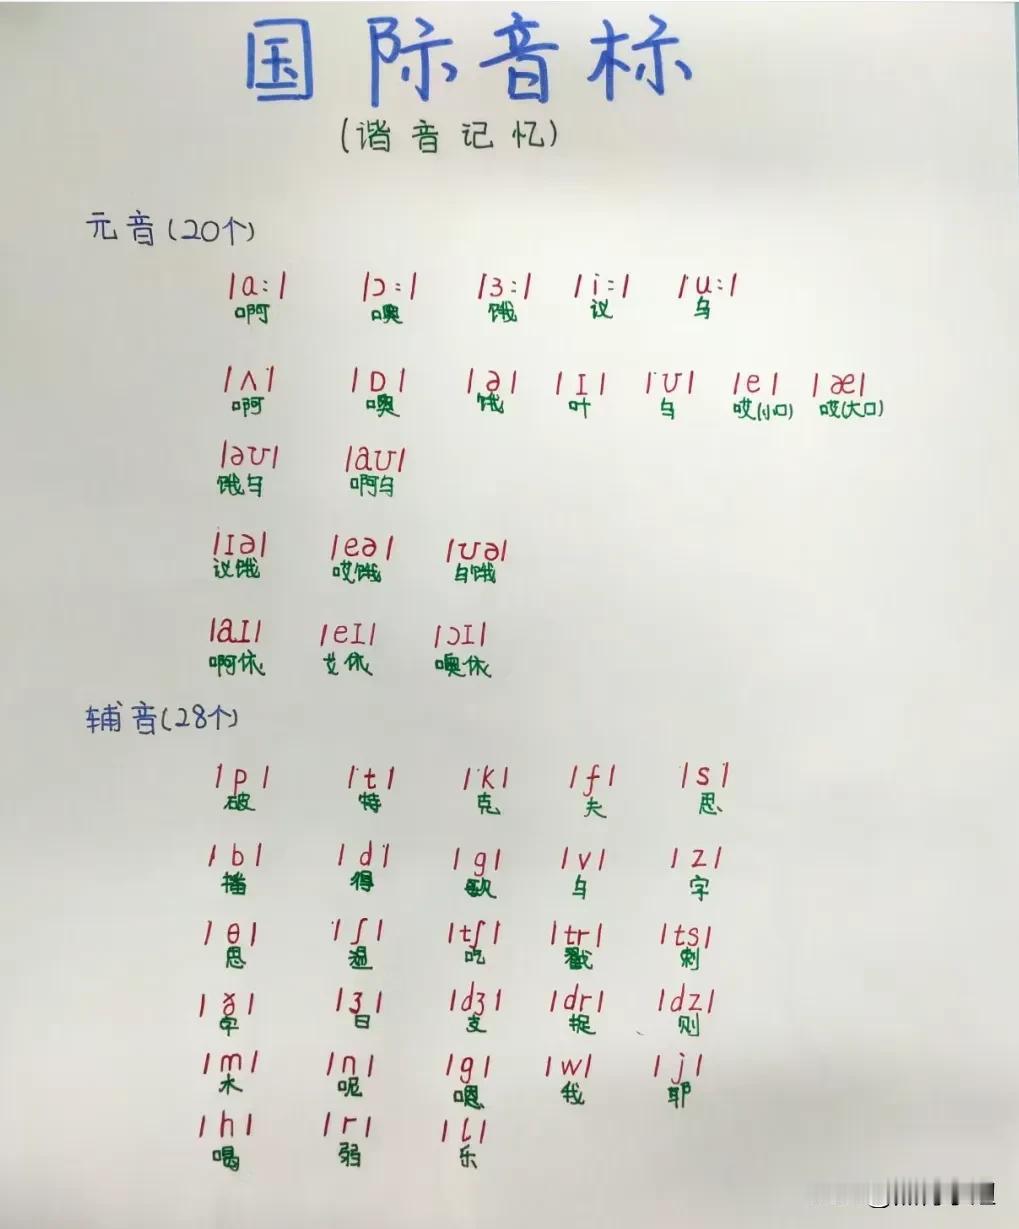 国际音标
(谐音记忆)
元音(20个)
/a:/ /ɔ:/ /ɜ:/ /i:/ /u:/
啊 噢 饿 议 乌
/ʌ/ /ɒ/ /ə/ /ɪ/ /ʊ/ /e/ /æ/
啊 噢 饿 叶 乌 哎(小口) 哎(大口)
/əʊ/ /aʊ/
饿乌 啊乌
/ɪə/ /eə/ /ʊə/
议饿 哎饿 乌饿
/aɪ/ /eɪ/ /ɔɪ/
啊依 艾依 噢依
辅音(28个)
/p/ /t/ /k/ /f/ /s/
破 特 克 夫 思
/b/ /d/ /g/ /v/ /z/
播 得 歌 乌 字
/θ/ /ʃ/ /tʃ/ /tr/ /ts/
思 吃 戳 刺
/ð/ /ʒ/ /dʒ/ /dr/ /dz/
字 日 支 捉 则
/m/ /n/ /g/ /w/ /j/
木 呢 嗯 我 耶
/h/ /r/ /l/
喝 弱 乐